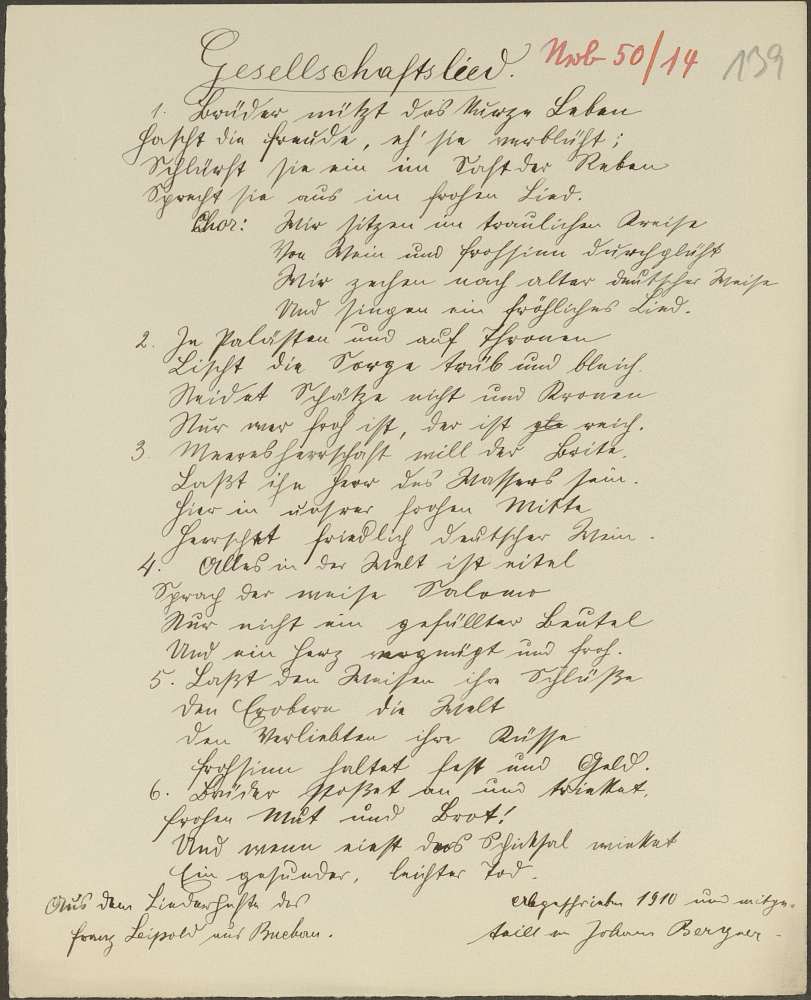 Gesellschaftslied.
50/14
139
1. Brüder nützt das kurze Leben
Hascht die Freude, eh' sie verblüht;
Schlürft sie ein im Saft der Reben
Sprecht sie aus im frohen Lied.
Chor: Wir sitzen im traulichen Kreise
Von Wein und Frohsinn durchglüht
Wir zechen nach alter deutscher Weise
Und singen ein fröhliches Lied.
2. In Palästen und auf Thronen
Lischt die Sorge trüb und bleich.
Neidet Schätze nicht und Kronen
Nur wer froh ist, der ist reich.
3. Meeresherrschaft will der Brite,
Laßt ihn Herr des Wassers sein.
Hier in unsrer frohen Mitte
Herrscht friedlich deutscher Wein.
4. Alles in der Welt ist eitel
Sprach der weise Salomo
Nur nicht ein gefüllter Beutel
Und ein Herz vergnügt und froh.
5. Laßt den Weisen ihre Schlüße
Den Erobern die Welt
Den Verliebten ihre Küsse
Frohsinn haltet fest und Geld.
6. Brüder stoßet an und trinket,
Frohen Mut und Brot!
Und wenn einst das Schicksal winket
Ein gesunder, leichter Tod.
Aus dem Liederhefte des
Franz Leipold aus Buchau.
Abgeschrieben 1910 und mitge-
teilt v. Johann Bergner.